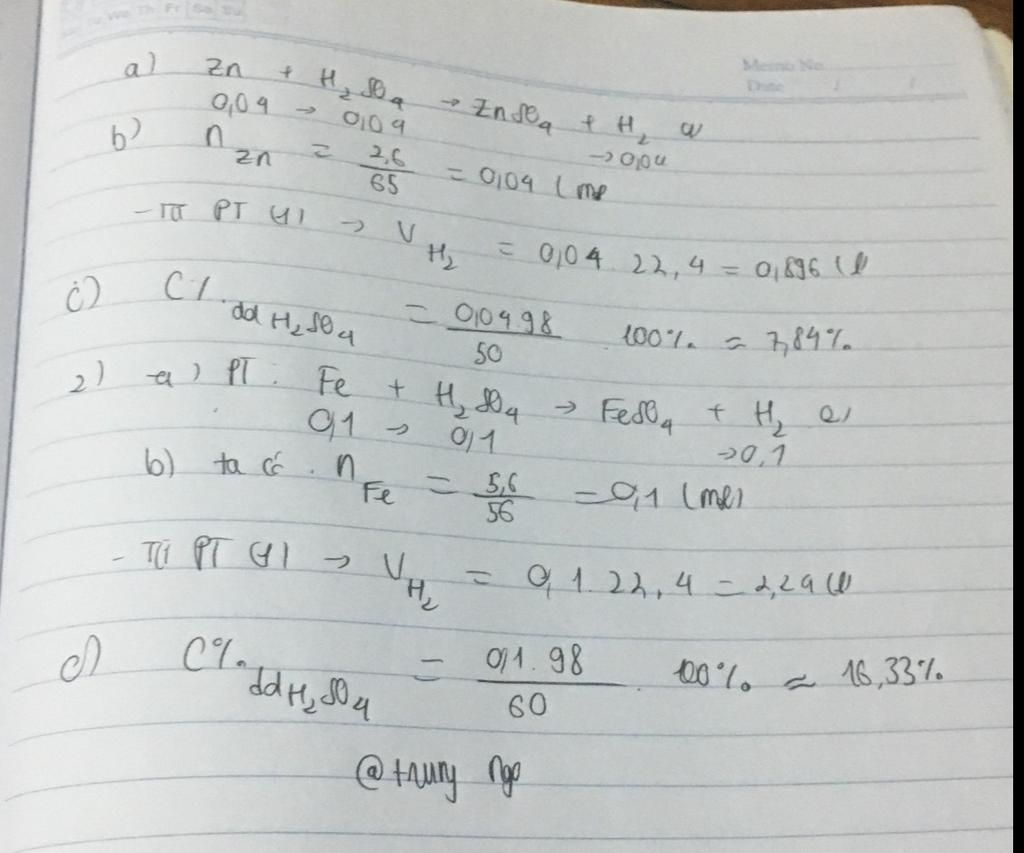 Tu We Th Fr Sa Su
Memo No.
Date / /
a) Zn + H2SO4 → ZnSO4 + H2 (1)
0,04 → 0,04 → 0,04
b) nZn = 2,6/65 = 0,04 (mol
- Từ PT (1) → VH2 = 0,04 . 22,4 = 0,896 (l
c) C%ddH2SO4 = 0,04.98/50 . 100% = 7,84%
2) a) PT: Fe + H2SO4 → FeSO4 + H2 (1)
0,1 → 0,1 → 0,1
b) ta có . nFe = 5,6/56 = 0,1 (mol)
- Từ PT (1) → VH2 = 0,1 . 22,4 = 2,24 (l)
c) C%ddH2SO4 = 0,1 . 98/60 . 100% ≈ 16,33%
@trung ngo